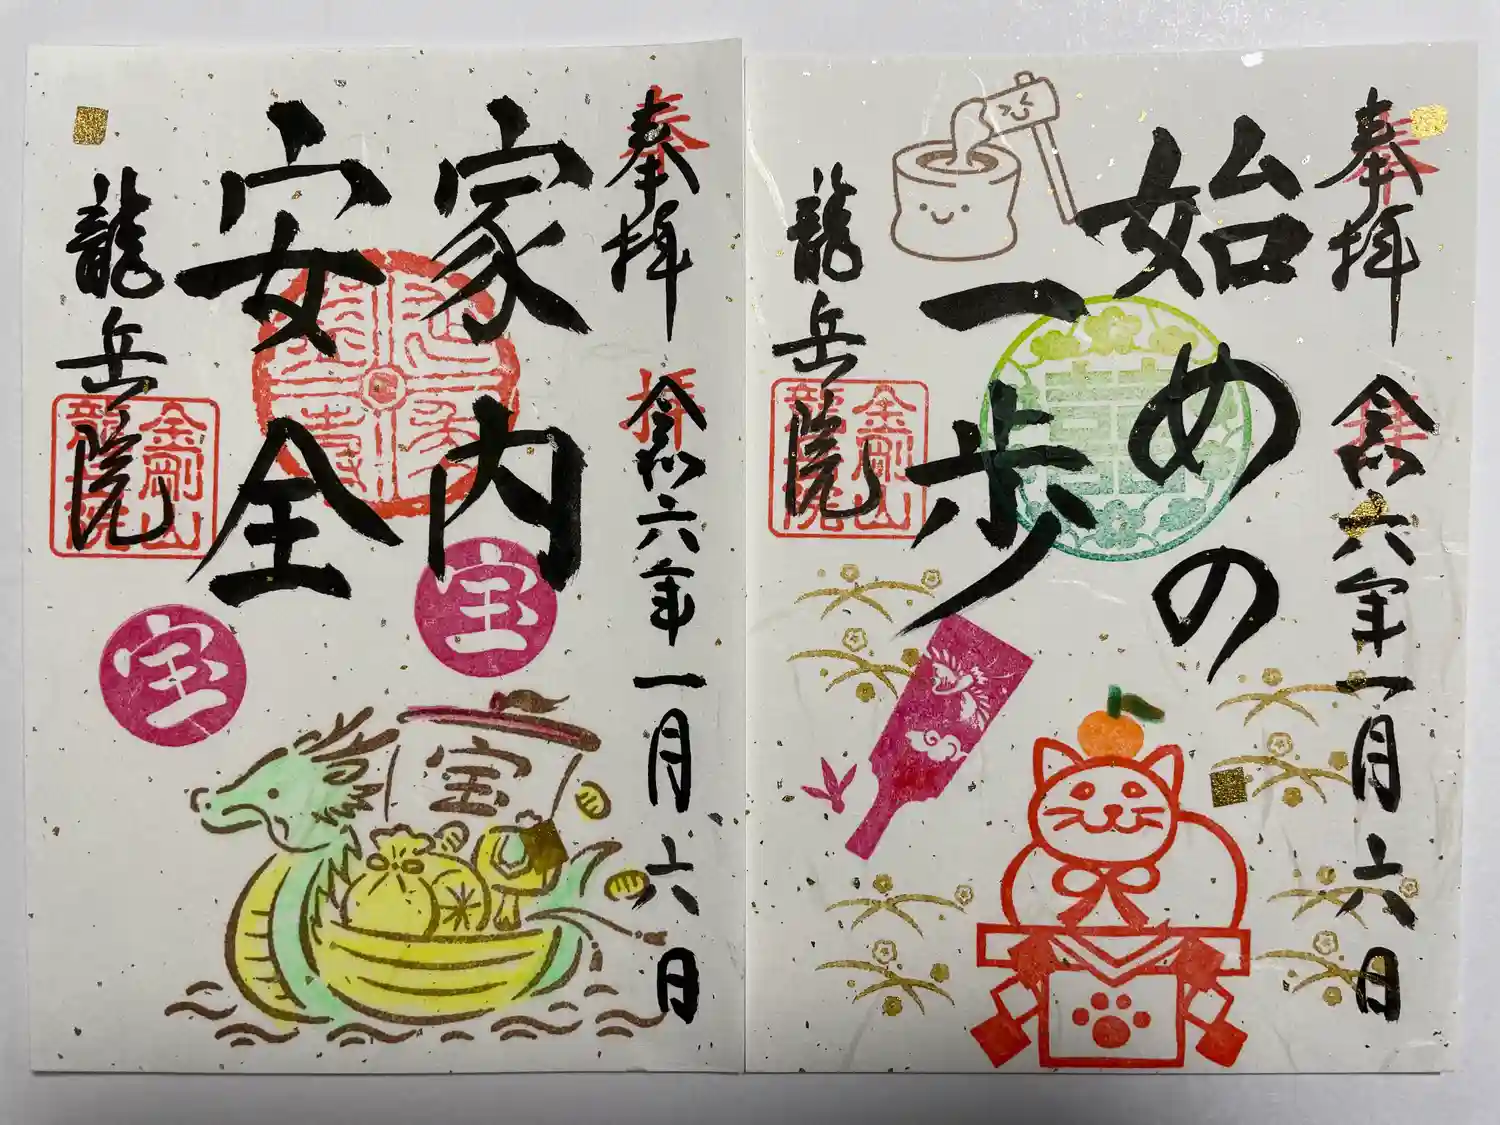 奉拝
令和六年一月六日
家内
安全
龍岳院
金剛山
龍岳院
宝
宝
宝
奉拝
令和六年一月六日
始めの
一歩
龍岳院
金剛山
龍岳院